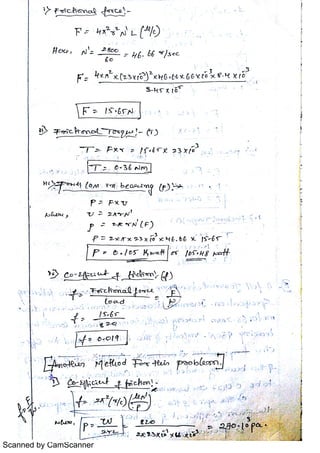 i) Frictional force:-
F = 4π²r²N'L (μ/c)
Here, N' = 2800/60 = 46.66 r/sec
F = 4×π²×(23×10³)²×46.66×66×10³×8.4×10³
3.45×10⁵
F = 15.65N
ii) Frictional Torque:- (T)
T = F×r = 15.65 × 23×10³
T = 0.36 Nm
iii) Power loss in bearing (P):-
P = F×U
where, U = 2πrN'
P = 2πrN'(F)
P = 2×π×23×10³×46.66 × 15.65
P = 0.105 Kwatt or 105.48 watt
iv) Co-efficient of friction: (f)
f = Frictional force/Load = F/W
f = 15.65/820
f = 0.019
[Another Method For this problem]
i) Co-efficient of friction:-
f = 2π²(r/c)(μN'/P)
where, P = W/2rL = 820/2×23×10³×66×10³ = 270.10³ pa.
f = F/W
Scanned by CamScanner